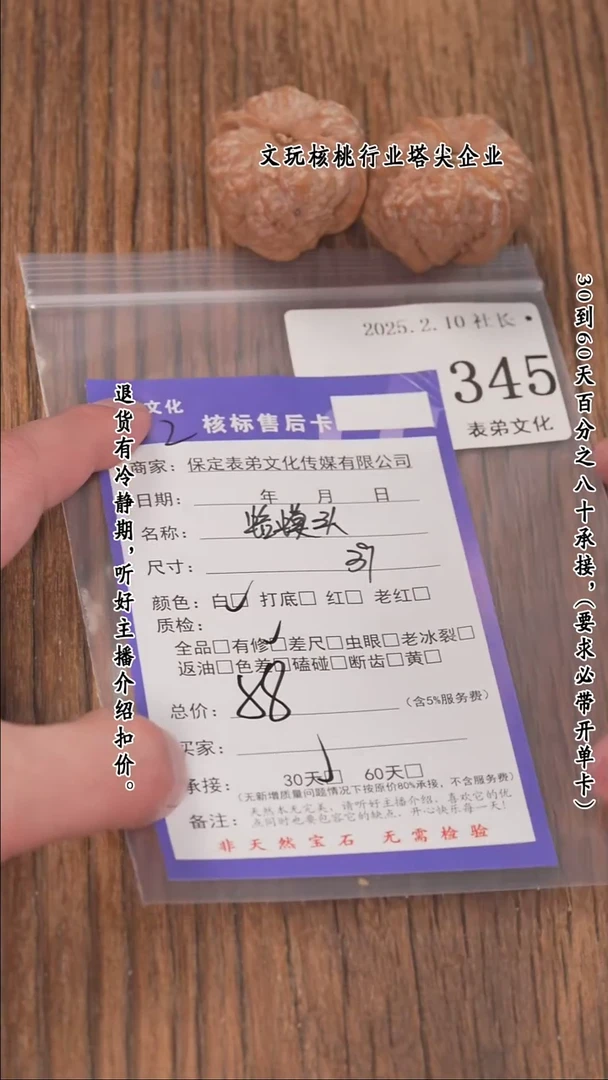 文玩核桃行业塔尖企业
30到60天百分之八十承接，(要求必带开单卡)
退货有冷静期，听好主播介绍扣价。
2025.2.10 社长
345
表弟文化
文化
2
核标售后卡
商家：保定表弟文化传媒有限公司
日期： 年 月 日
名称： 头
尺寸： 39
颜色：白☑ 打底□ 红□ 老红□
质检：
全品□有修☑差尺□虫眼□老冰裂□
返油□色差□磕碰□断齿□黄□
总价： 88 (含5%服务费)
买家：
承接： 30天☑ 60天□
(无新增质量问题情况下按原价80%承接，不含服务费)
备注：天然本无完美，请听好主播介绍，喜欢它的优
点同时也要包容它的缺点，开心快乐每一天！
非天然宝石 无需检验